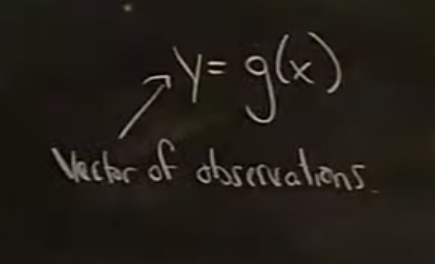 y = g(x)
Vector of observations.